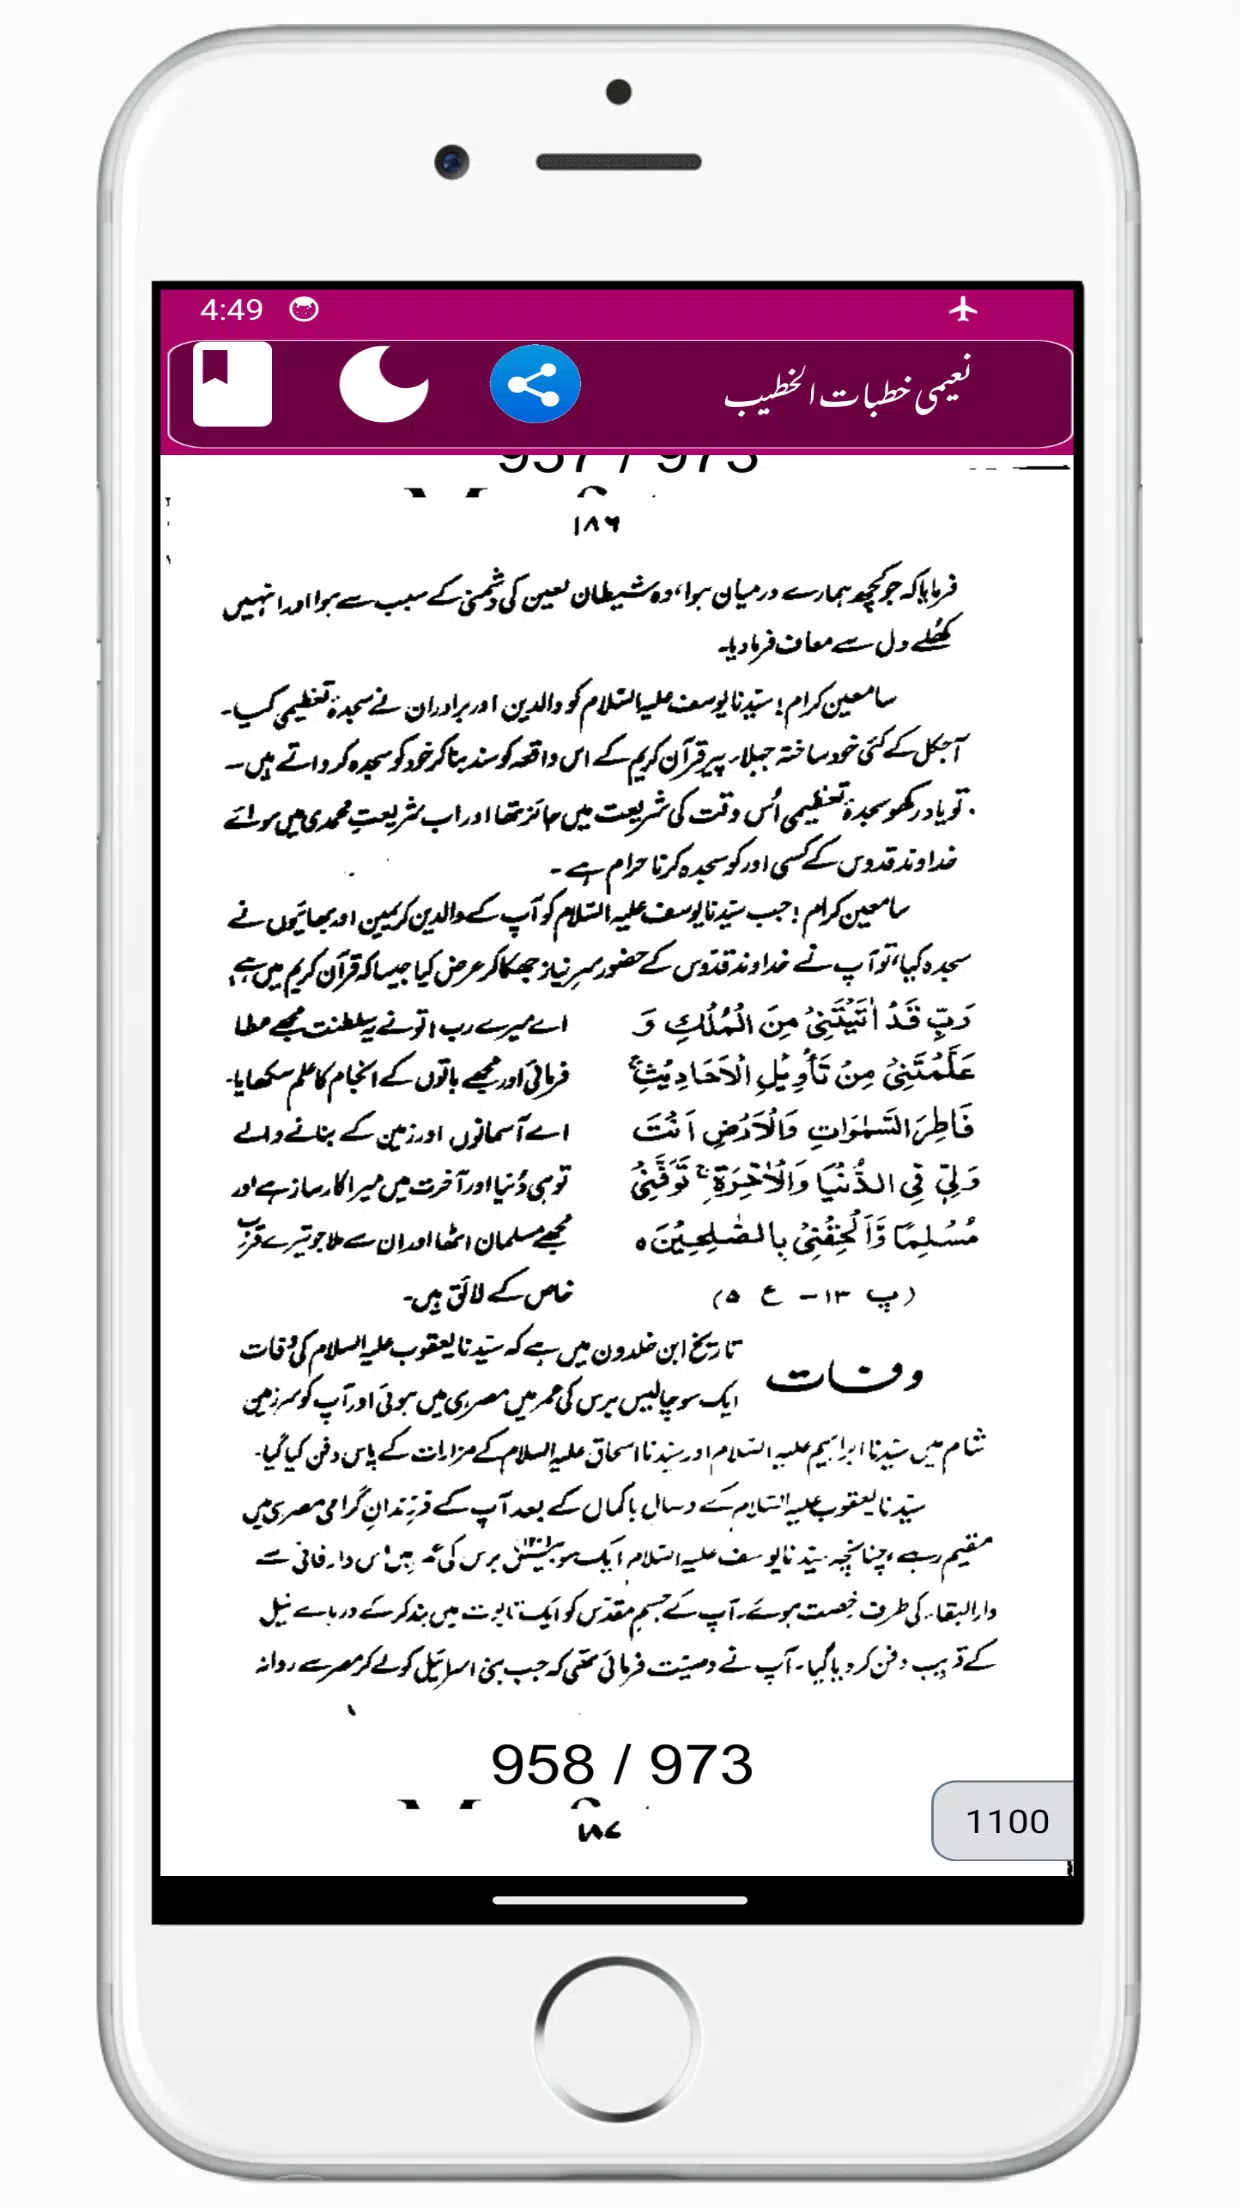 4:49
نعیمی خطبات الخطیب
957 / 973
۱۸۶
فرمایا کہ جو کچھ ہمارے درمیان ہوا، وہ شیطان لعین کی دشمنی کے سبب سے ہوا اور انہیں
کھلے دل سے معاف فرما دیا۔
سامعین کرام! سیّدنا یوسف علیہ السّلام کو والدین اور برادران نے سجدۂ تعظیمی کیا۔
آجکل کے کئی خود ساختہ جہلاء پیر قرآن کریم کے اس واقعہ کو سند بنا کر خود کو سجدہ کرواتے ہیں۔
تو یاد رکھو سجدۂ تعظیمی اُس وقت کی شریعت میں جائز تھا اور اب شریعتِ محمدی میں سوائے
خداوند قدوس کے کسی اور کو سجدہ کرنا حرام ہے۔
سامعین کرام! جب سیّدنا یوسف علیہ السّلام کو آپ کے والدین کریمین اور بھائیوں نے
سجدہ کیا، تو آپ نے خداوند قدّوس کے حضور سرِ نیاز جھکا کر عرض کیا جیسا کہ قرآن کریم میں ہے؛
رَبِّ قَدْ اٰتَيْتَنِيْ مِنَ الْمُلْكِ وَ
عَلَّمْتَنِيْ مِنْ تَأْوِيْلِ الْاَحَادِيْثِ ۚ
فَاطِرَ السَّمٰوٰتِ وَالْاَرْضِ اَنْتَ
وَلِيّٖ فِي الدُّنْيَا وَالْاٰخِرَةِ ۚ تَوَفَّنِيْ
مُسْلِمًا وَّاَلْحِقْنِيْ بِالصّٰلِحِيْنَ ۝
(پ ۱۳ - ع ۵)
اے میرے رب! تو نے یہ سلطنت مجھے عطا
فرمائی اور مجھے باتوں کے انجام کا علم سکھایا۔
اے آسمانوں اور زمین کے بنانے والے
تو ہی دُنیا اور آخرت میں میرا کارساز ہے اور
مجھے مسلمان اٹھا اور ان سے ملا جو تیرے قرب
خاص کے لائق ہیں۔
وفات
تاریخ ابن خلدون میں ہے کہ سیّدنا یعقوب علیہ السلام کی وفات
ایک سو چالیس برس کی عمر میں مصر ہی میں ہوئی اور آپ کو سرزمین
شام میں سیّدنا ابراہیم علیہ السّلام اور سیّدنا اسحاق علیہ السلام کے مزارات کے پاس دفن کیا گیا۔
سیّدنا یعقوب علیہ السّلام کے وصال باکمال کے بعد آپ کے فرزندانِ گرامی مصر ہی میں
مقیم رہے، چنانچہ سیّدنا یوسف علیہ السّلام ایک سو بیس برس کی عمر میں اس دار فانی سے
دار البقاء کی طرف رخصت ہوئے۔ آپ کے جسمِ مقدّس کو ایک تابوت میں بند کرکے دریائے نیل
کے قریب دفن کر دیا گیا۔ آپ نے وصیّت فرمائی تھی کہ جب بنی اسرائیل کو لے کر مصر سے روانہ
958 / 973
۱۸۷
1100